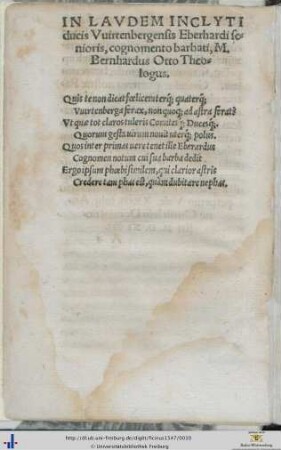 IN LAVDEM INCLYTI
ducis Vuirtenbergensis Eberhardi se-
nioris, cognomento barbati, M.
Bernhardus Otto Theo-
logus.
Quis te non dicat fœlicem terq́; quaterq́;
Vuirtenberga ferax, non quoq; ad astra ferat?
Vt quæ tot claros tuleris Comites q́; Duces q́;,
Quorum gesta uirum nouit uterq́; polus.
Quos inter primas uere tenet ille Eberardus
Cognomen notum cui sua barba dedit
Ergo ipsum phœbi similem, qui clarior astris
Credere tam phas est, quàm dubitare nephas.
http://dl.ub.uni-freiburg.de/diglit/ficinus1547/0010
© Universitätsbibliothek Freiburg